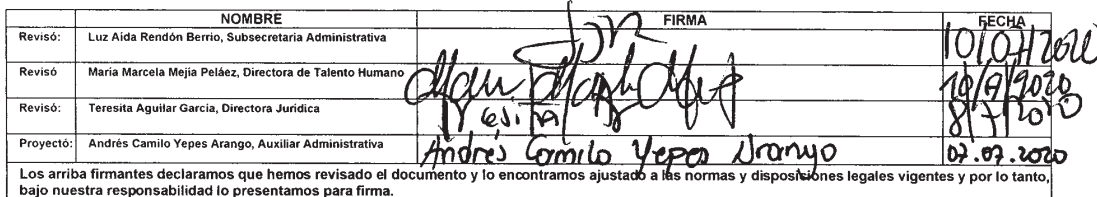 NOMBRE FIRMA FECHA
Revisó: Luz Aida Rendón Berrio, Subsecretaria Administrativa 10/07/2020
Revisó Maria Marcela Mejia Peláez, Directora de Talento Humano
Revisó: Teresita Aguilar García, Directora Jurídica 8/7/2020
Proyectó: Andrés Camilo Yepes Arango, Auxiliar Administrativa Andrés Camilo Yepes Arango 07.07.2020
Los arriba firmantes declaramos que hemos revisado el documento y lo encontramos ajustado a las normas y disposiciones legales vigentes y por lo tanto,
bajo nuestra responsabilidad lo presentamos para firma.